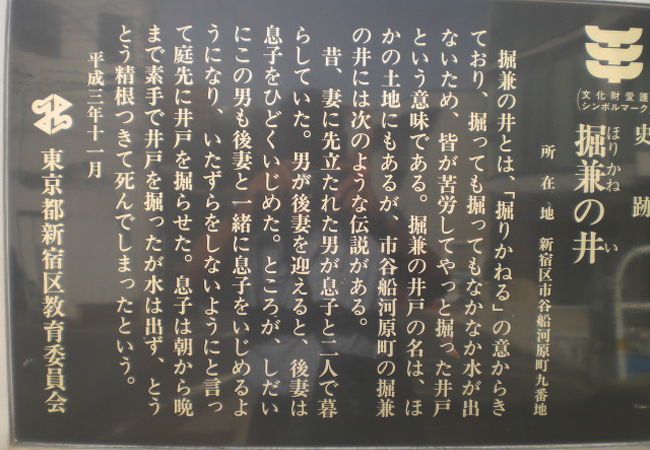 (文化財愛護
シンボルマーク
史跡
ほりかね い
掘兼の井
所在地 新宿区市谷船河原町九番地
掘兼の井とは、「掘りかねる」の意からき
ており、掘っても掘ってもなかなか水が出
ないため、皆が苦労してやっと掘った井戸
という意味である。掘兼の井戸の名は、ほ
かの土地にもあるが、市谷船河原町の掘兼
の井には次のような伝説がある。
昔、妻に先立たれた男が息子と二人で暮
らしていた。男が後妻を迎えると、後妻は
息子をひどくいじめた。ところが、しだい
にこの男も後妻と一緒に息子をいじめるよ
うになり、いたずらをしないようにと言っ
て庭先に井戸を掘らせた。息子は朝から晩
まで素手で井戸を掘ったが水は出ず、とう
とう精根つきて死んでしまったという。
平成三年十一月
東京都新宿区教育委員会